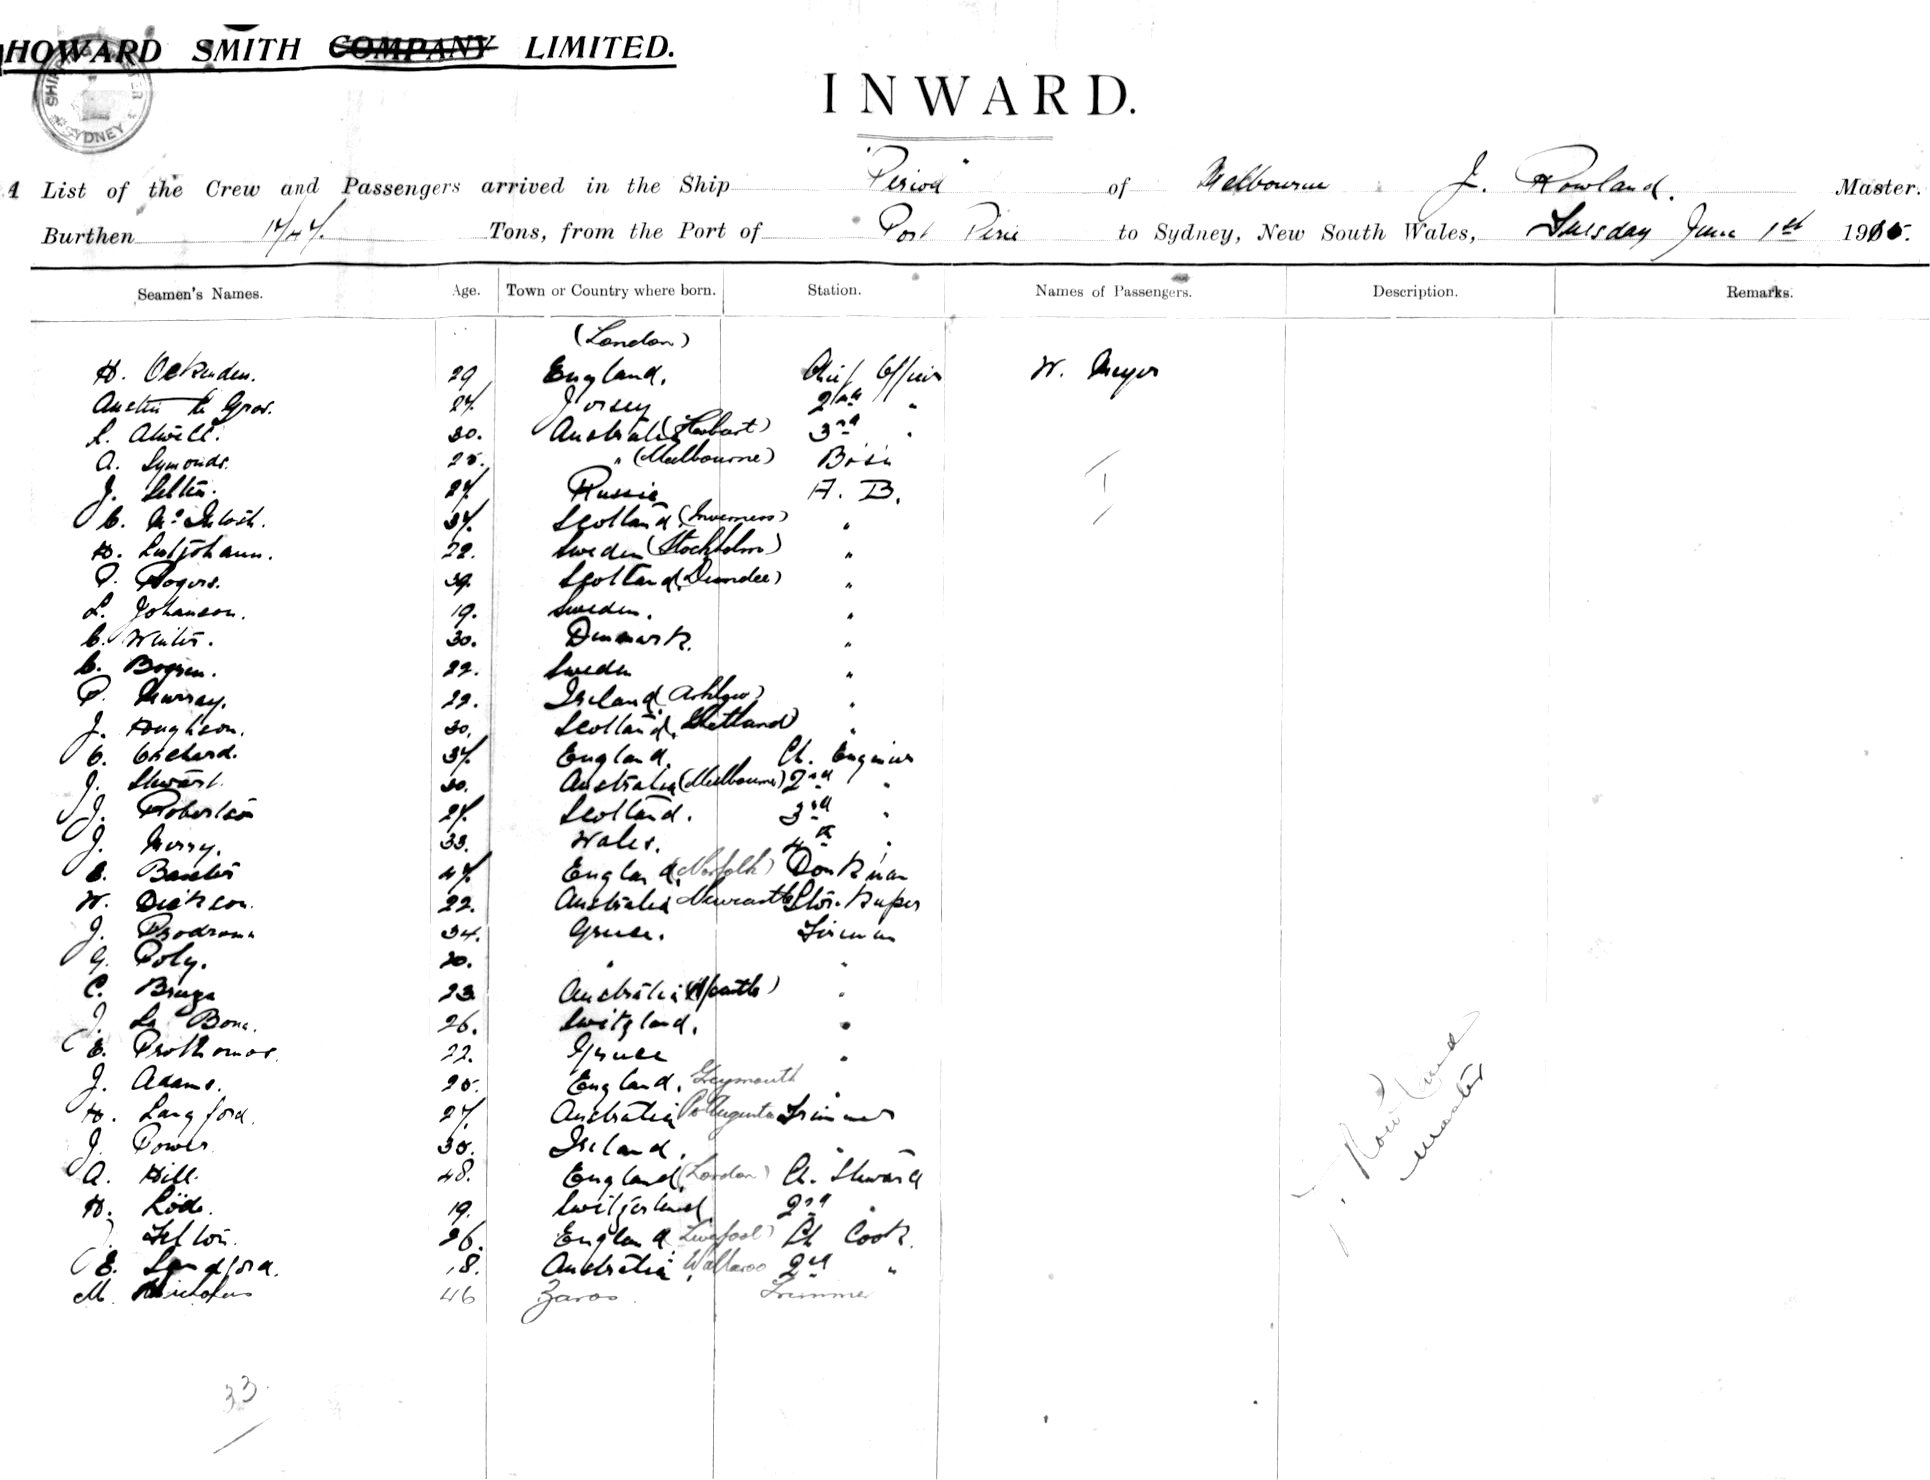 HOWARD SMITH COMPANY LIMITED.
SYDNEY
INWARD.
List of the Crew and Passengers arrived in the Ship "Period" of Melbourne J. Rowland. Master.
Burthen Tons, from the Port of Port Pirie to Sydney, New South Wales, Tuesday June 1st 1915.
Seamen's Names. Age. Town or Country where born. Station. Names of Passengers. Description. Remarks.
(London)
H. Ockenden. 29 England. Chief Officer W. Meyer
Austin Le Gros. 27. Jersey 2nd "
L. Atwell. 30. Australia (Hobart) 3rd "
A. Symonds. 25. " (Melbourne) Bos'n
J. 27. Russia A. B. 1
C. McIntosh. 37. Scotland (Inverness) "
H. Lutjohann. 22. Sweden (Stockholm) "
P. Rogers. 39. Scotland (Dundee) "
L. Johanson. 19. Sweden. "
C. Winter. 30. Denmark. "
C. 22. Sweden "
P. Murray. 22. Ireland (Arklow) "
J. Hughson. 30. Scotland (Shetland) "
C. Orchard. 37. England. Ch. Engineer
J. Stewart. 30. Australia (Melbourne) 2nd "
J. Robertson 27. Scotland. 3rd "
J. Merry. 33. Wales. 4th "
E. 47. England (Norfolk) Donkman
W. Dickson. 22. Australia Newcastle Stor. Keeper
J. 34. Greece. Fireman
G. Poly. 30. " "
C. Braga 23 Australia (N/castle) "
J. La Bona. 26. Switzland. "
E. Prothomos. 22. Greece "
J. Adams. 25. England. Greymouth "
H. Langford. 27. Australia Pt Augusta Trimmer
J. Power. 35. Ireland. "
A. Hill. 48. England (London) Ch. Steward
H. Löde. 19. Switzerland. 2nd "
J. Felton. 26. England (Liverpool) Ch Cook.
E. Sandford. 18. Australia Wallaroo 2nd "
M. Nicholas 46 Zaros. Trimmer
J. Rowland
Master
33